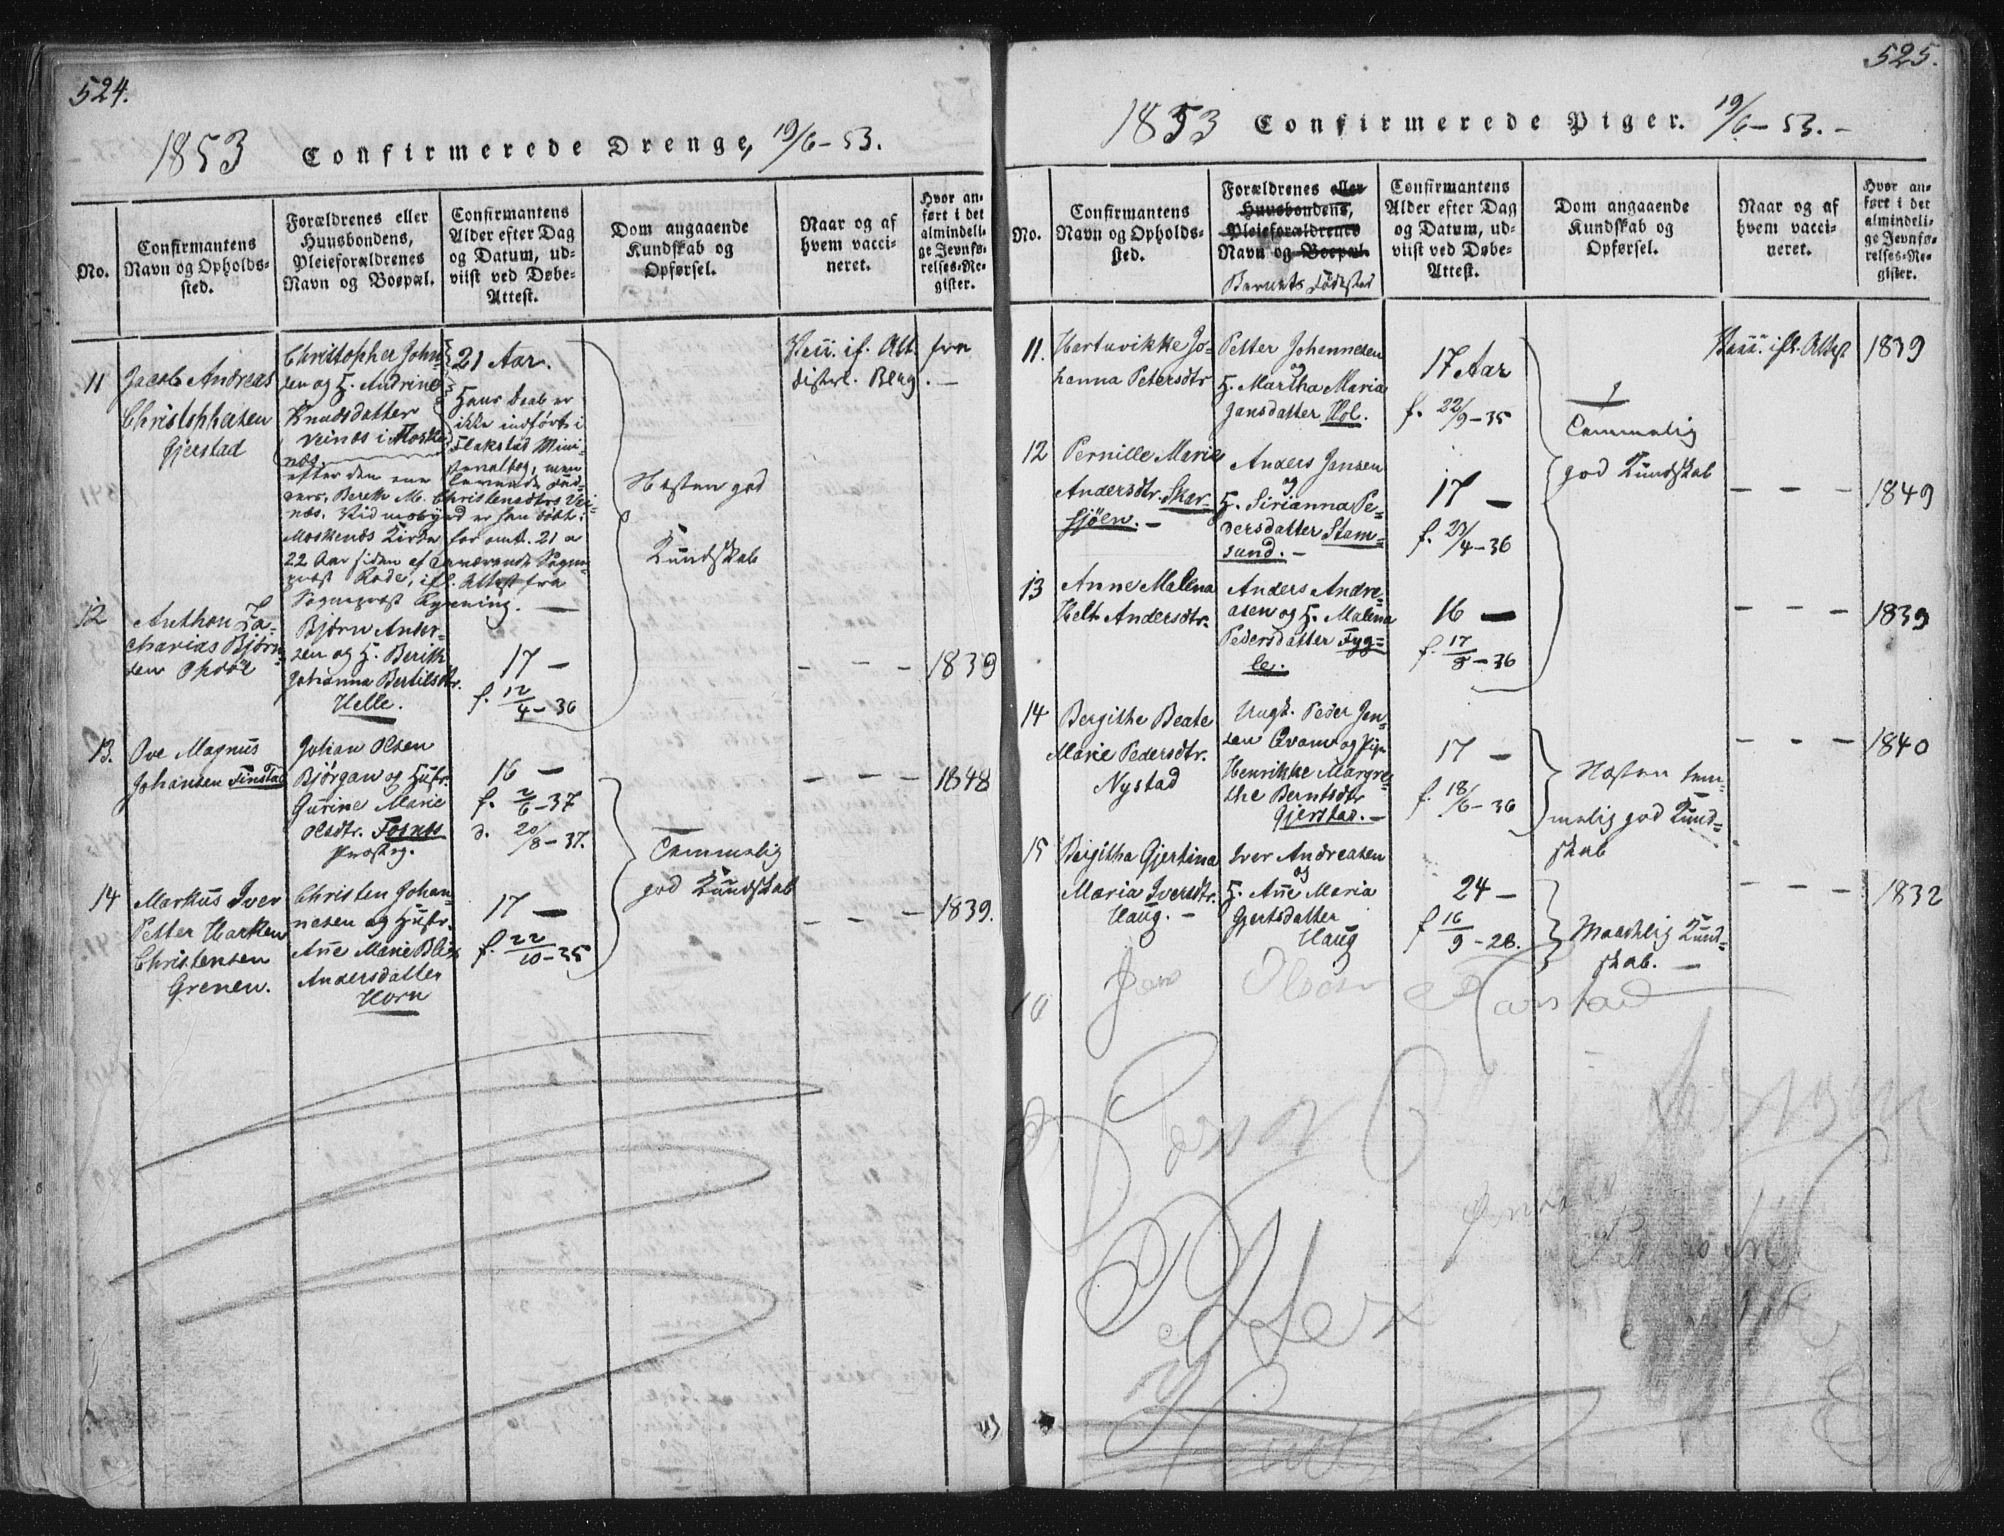 524.
1853 Confirmerede Drenge, 19/6-53.
No.
Confirmantens
Navn og Opholds-
sted.
Forældrenes eller
Huusbondens,
Pleieforældrenes
Navn og Boepæl.
Confirmantens
Alder efter Dag
og Datum, ud-
viist ved Døbe-
Attest.
Dom angaaende
Kundskab og
Opførsel.
Naar og af
hvem vacci-
neret.
Hvor an-
ført i det
almindeli-
ge Jevnfø-
relses-Re-
gister.
11
Jacob Andreas
Christophersen
Gjerstad
Christopher John-
sen og H. Andrine
Knudsdatter
Veinæs i Moske-
næs.
21 Aar.
Hans Daab er
ikke indført i
Flakstad Mini-
sterialbog, men
efter den ene levende Fad-
ders, Bereth M. Christensdtrs Vei-
næs. Vidnesbyrd er han døbt i
Moskenæs Kirke for omt. 21 a
22 Aar siden af
præst Rode, ifl. Attest fra
Sognepræst
Næsten god
Kundskab
Vacc. if. Att. fra
distrl. Berg. -
12
Anthon Za-
charias Bjørn-
sen
Bjørn Ander-
sen og H. Berith
Johanna Bertilsdtr.
Helle.
17 -
f. 12/4-36
- - -
1839
13.
Ove Magnus
Johansen Finstad
Johan Olsen
Bjørgan og Hustr.
Gurine Marie
Olsdtr. Fosnes
Præsteg.
16 -
f. 2/6-37
d. 20/8-37.
- - -
1848
Temmelig
god Kundskab
14
Markus Iver
Petter Harken
Christensen
Grenen.
Christen Johan-
nesen og Hustr.
Ane Marie Blix
Andersdatter
Horn
17 -
f. 22/10-35
- - -
1839.
525.
1853 Confirmerede Piger. 19/6-53.-
No.
Confirmantens
Navn og Opholds-
sted.
Forældrenes eller
Huusbondens,
Pleieforældrenes
Navn og Boepæl.
Barnets Fødested
Confirmantens
Alder efter Dag
og Datum, ud-
viist ved Døbe-
Attest.
Dom angaaende
Kundskab og
Opførsel.
Naar og af
hvem vacci-
neret.
Hvor an-
ført i det
almindeli-
ge Jevnfø-
relses-Re-
gister.
11.
Hartvikke Jo-
hanna Petersdtr
Petter Johannesen
og
H. Martha Maria
Jansdatter Hol.
17 Aar
f. 22/9-35
Temmelig
god Kundskab
Vacc. ifl. Attest
1839
12
Pernille Marie
Andersdtr. Skar-
sjøen. -
Anders Jensen
og
H. Sirianna Pe-
dersdatter Stam-
sund. -
17 -
f. 23/4-36
- - -
1849
13
Anne Malena
Helt Andersdtr.
Anders Andre-
asen og H. Malena
Pedersdatter Fyg-
le.
16 -
f. 17/8-36
- - -
1839
14
Bergithe Beate
Marie Pedersdtr.
Nystad
Ungk. Peder Jen-
sen Qvam og Pige
Henrikke Margre-
the Berntsdtr
Gjerstad. -
17 -
f. 18/6-36
Næsten tem-
melig god Kund-
skab
- - -
1840
15
Bergitha Gjertina
Maria Iversdtr.
Haug. -
Iver Andreasen
og
H. Ane Maria
Gjertsdatter
Haug
24 -
f 16/9-28.
Maadelig Kund-
skab. -
- - -
1832
16